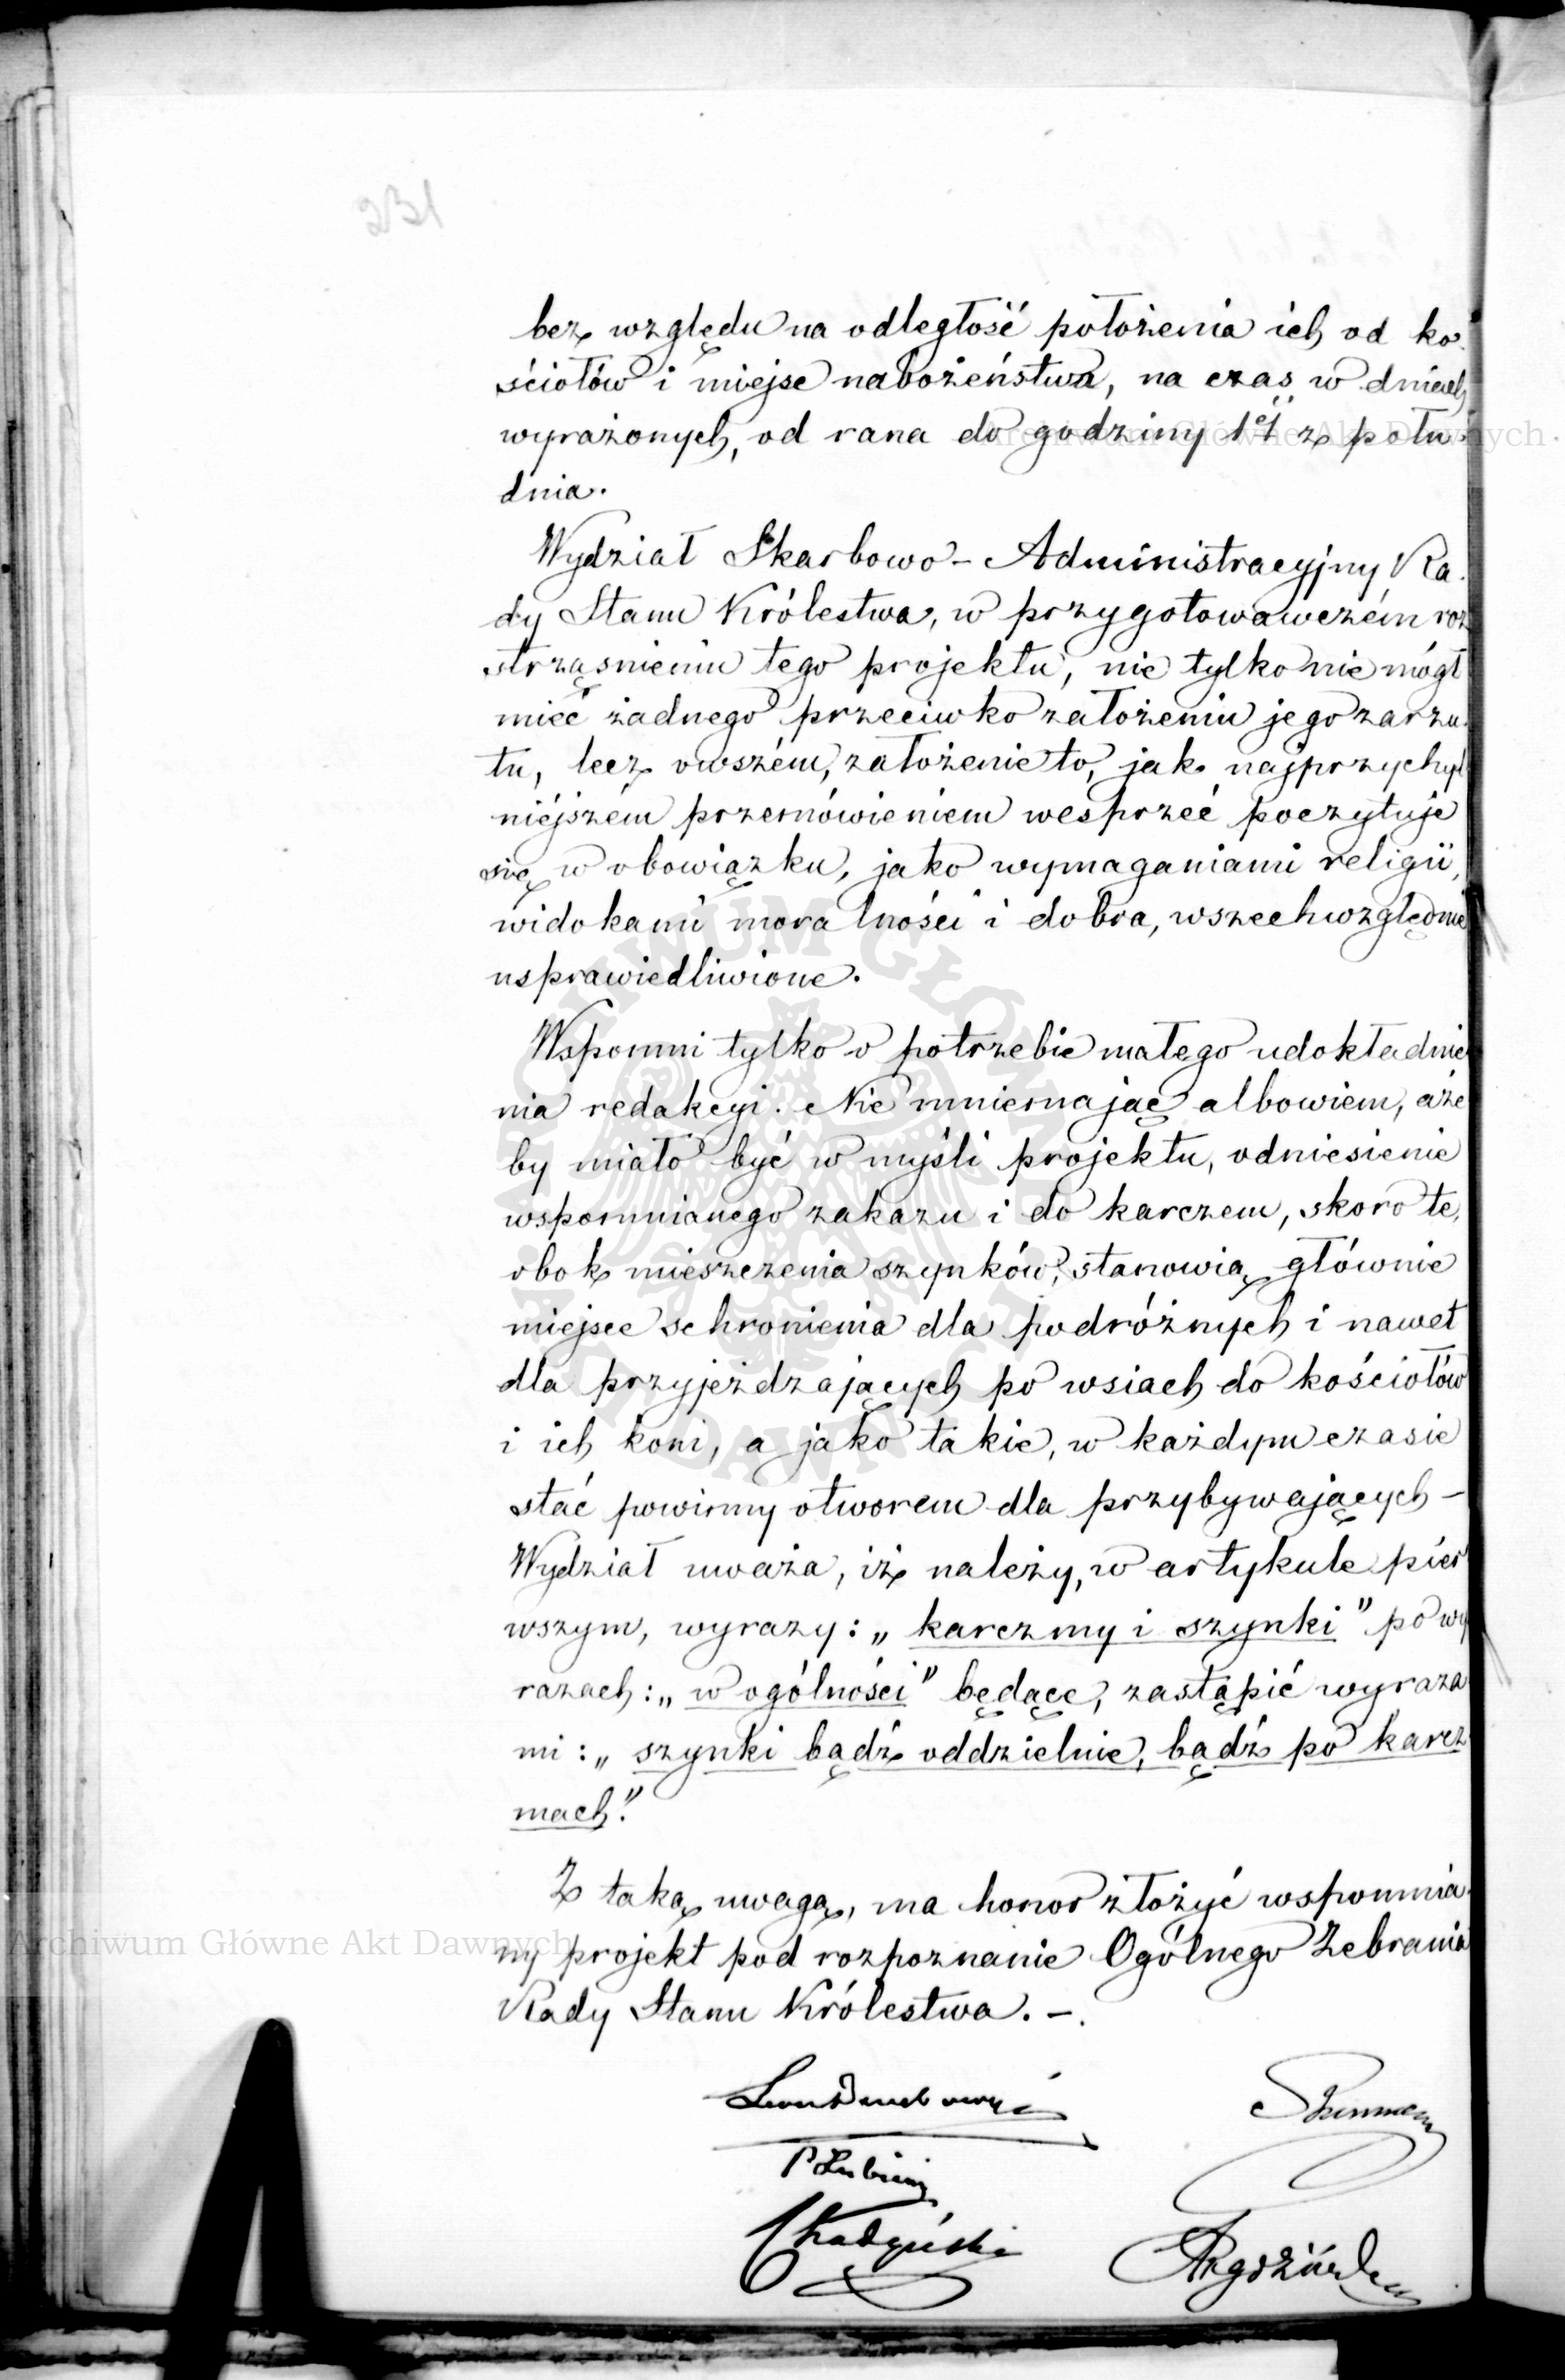 231
bez względu na odległość położenia ich od ko-
ściołów i miejsc nabożeństwa, na czas w dniach
wyrażonych, od rana do godziny 1éj z połu-
dnia.
Wydział Skarbowo-Administracyjny Ra-
dy Stanu Królestwa, w przygotowawczém roz
strząśnieniu tego projektu, nie tylko nie mógł
mieć żadnego przeciwko założeniu jego zarzu-
tu, lecz owszém, założenie to, jak najprzychyl
niéjszém przemówieniem wesprzeć poczytuje
się w obowiązku, jako wymaganiami religii,
widokami moralności i dobra, wszechwzględnie
usprawiedliwione.
Wspomni tylko o potrzebie małego udokładnie
nia redakcyi. Nie mniemając albowiem, aże
by miało być w myśli projektu, odniesienie
wspomnianego zakazu i do karczem, skoro te,
obok mieszczenia szynków, stanowią głównie
miejsce schronienia dla podróżnych i nawet
dla przyjeżdzających po wsiach do kościołów
i ich koni, a jako takie, w każdym czasie
stać powinny otworem dla przybywających –
Wydział uważa, iż należy, w artykule pier
wszym, wyrazy: „karczmy i szynki" po wy
razach: „w ogólności" będące, zastąpić wyraza
mi: „szynki bądź oddzielnie, bądź po karcz-
mach."
Z taką uwagą, ma honor złożyć wspomnia-
ny projekt pod rozpoznanie Ogólnego Zebrania
Rady Stanu Królestwa. –.
Archiwum Główne Akt Dawnych
Archiwum Główne Akt Dawnych
ARCHIWUM GŁÓWNE AKT DAWNYCH